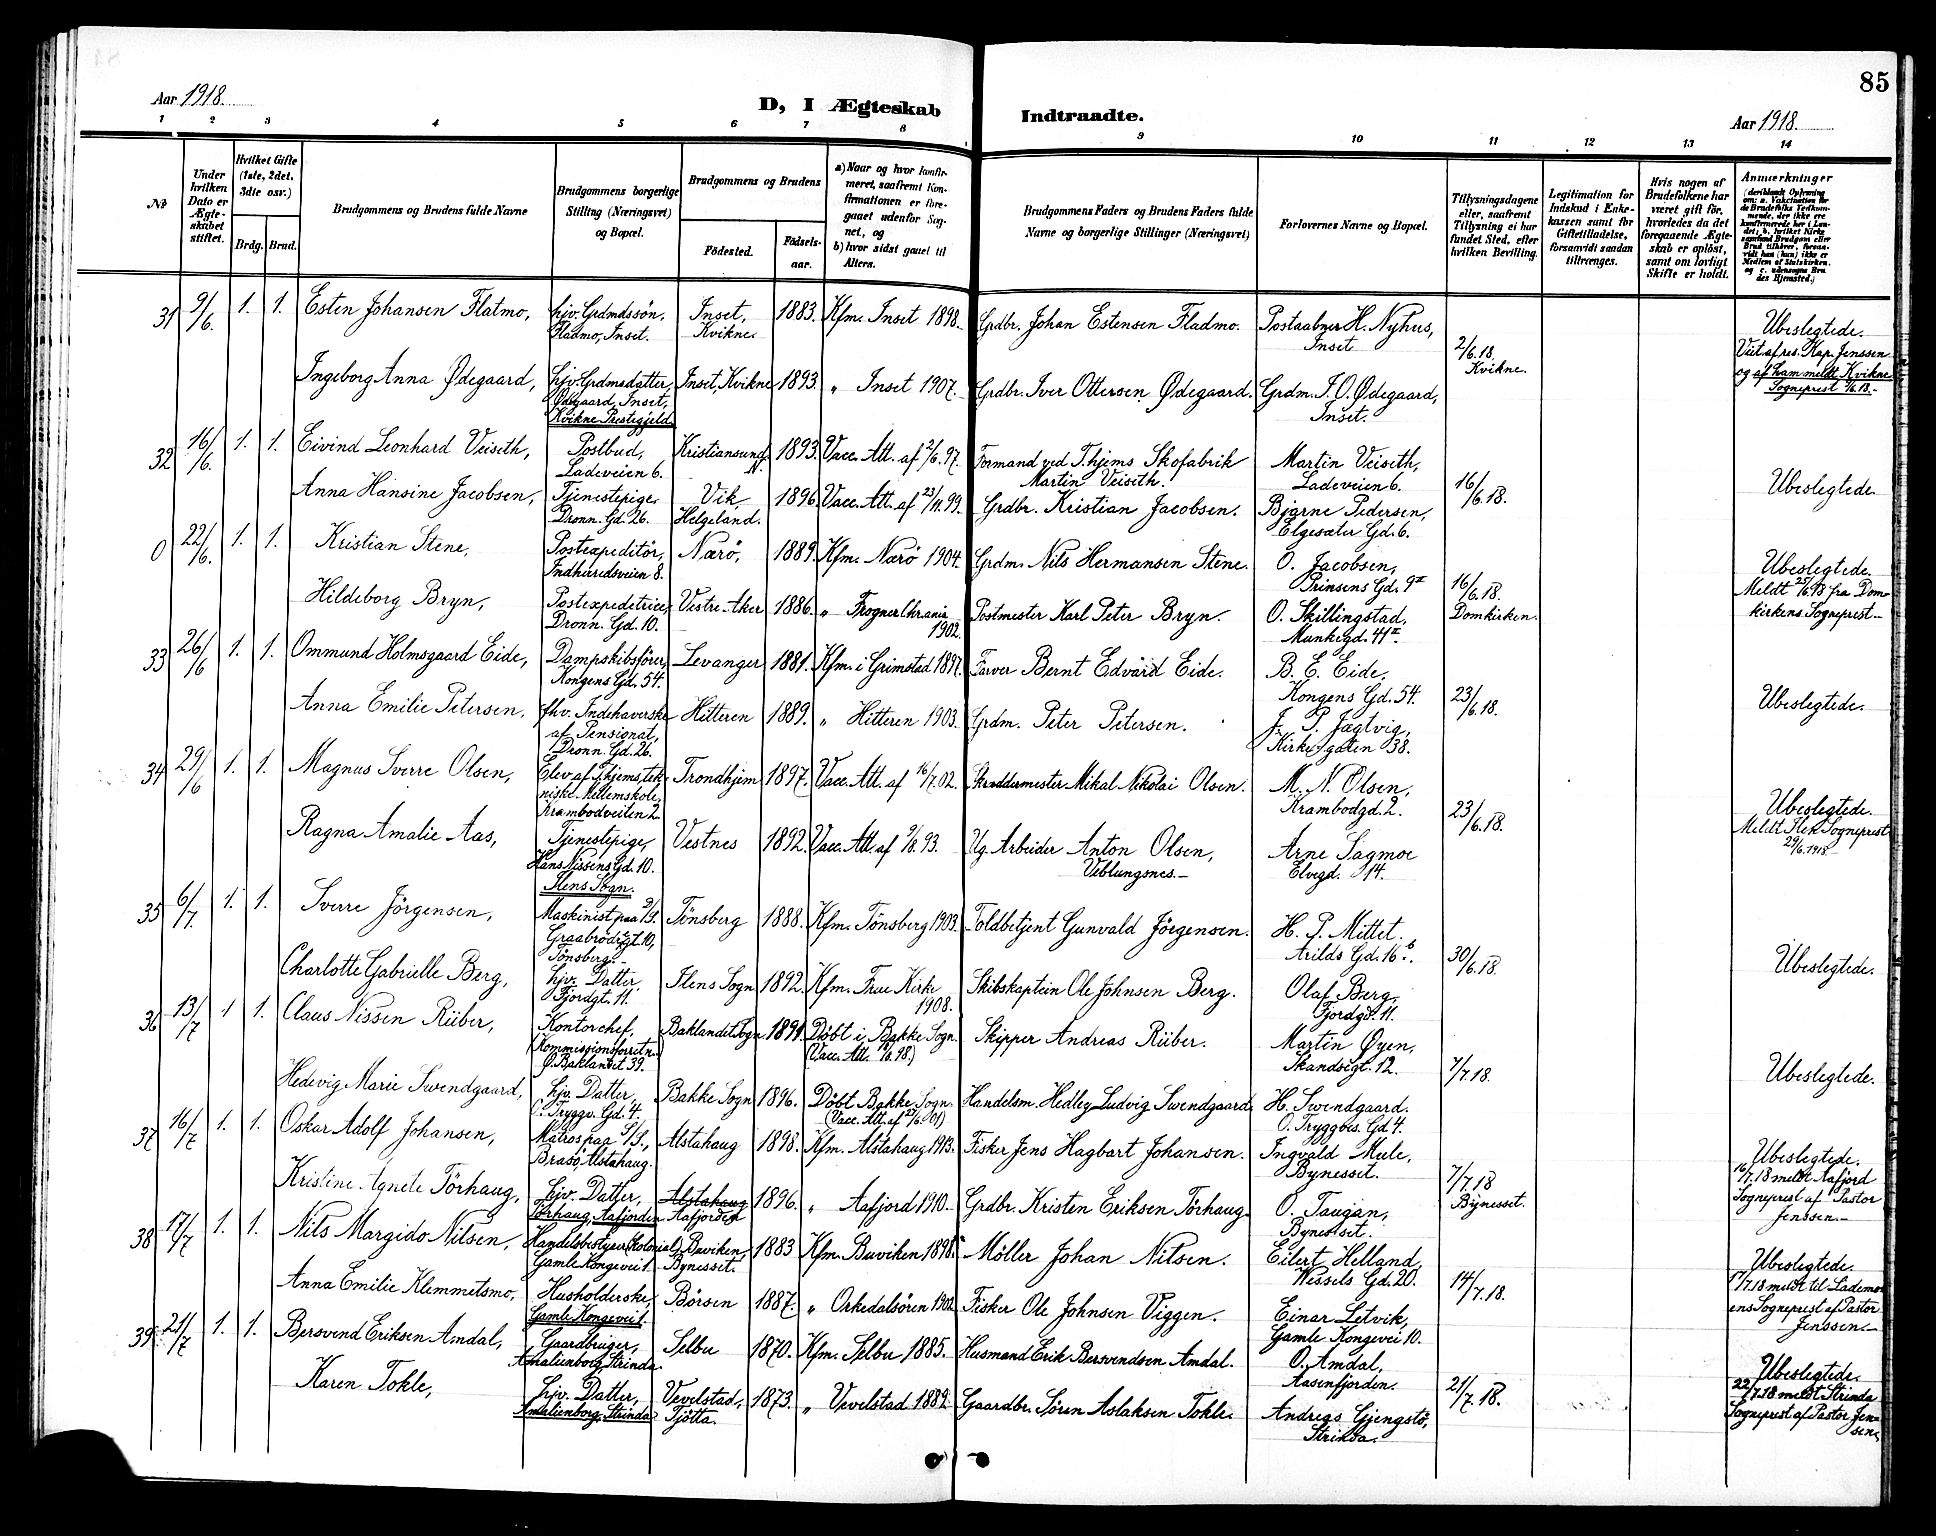 85
Aar 1918.
D, I Ægteskab Indtraadte.
Aar 1918.
1 2 3 4 5 6 7 8 9 10 11 12 13 14
No
Under hvilken Dato er Ægteskabet stiftet.
Hvilket Gifte (1ste, 2det. 3die osv.)
Brdg. Brud.
Brudgommens og Brudens fulde Navne
Brudgommens borgerlige Stilling (Næringsvei) og Bopæl.
Brudgommens og Brudens
Födested.
Födselsaar.
a) Naar og hvor konfirmeret, saafremt Konfirmationen er foregaaet udenfor Sognet, og
b) hvor sidst gaaet til Alters.
Brudgommens Faders og Brudens Faders fulde Navne og borgerlige Stillinger (Næringsvei)
Forlovernes Navne og Bopæl.
Tillysningsdagene eller, saafremt Tillysning ei har fundet Sted, efter hvilken Bevilling.
Legitimation for Indskud i Enkekassen samt for Giftetilladelse, forsaavidt saadan tiltrænges.
Hvis nogen af Brudefolkene har været gift för, hvorledes da det foregaaende Ægteskab er oplöst, samt om lovligt Skifte er holdt.
Anmærkninger
31 9/6. 1. 1. Esten Johansen Flatmo, hjv. Grdmdssön, Fladmo, Inset. Inset, Kvikne. 1883. Kfm. Inset 1898. Grdbr. Johan Estensen Fladmo. Postaabner H. Nyhus, Inset 2/6.18. Kvikne. Ubeslegtede.
Viet af res. Kap. Jenssen og af ham meldt Kvikne Sogneprest
Ingeborg Anna Ødegaard, hjv. Grdmsdatter, Ødegaard, Inset, Kvikne Prestegjeld. Inset, Kvikne 1893. „ Inset 1907. Grdbr. Iver Ottersen Ødegaard. Grdm. I. O. Ødegaard, Inset.
32 16/6. 1. 1. Eivind Leonhard Veiseth, Postbud, Ladeveien 6. Kristiansund N. 1893. Vacc. Att. af 2/6.97. Formand ved T.hjems Skofabrik Martin Veiseth. Martin Veiseth, Ladeveien 6. 16/6.18. Ubeslegtede.
Anna Hansine Jacobsen, Tjenestepige, Dronn. Gd. 26. Vik, Helgeland. 1896. Vacc. Att. af 23/11.99. Grdbr. Kristian Jacobsen. Bjarne Pedersen, Elgesæter Gd. 6.
0 22/6. 1. 1. Kristian Stene, Postexpeditör, Indherredsveien 8. Nærö, 1889. Kfm. Nærö 1904. Grdm. Nils Hermansen Stene. O. Jacobsen, Prinsens Gd. 9 II 16/6.18. Domkirken. Ubeslegtede.
Meldt 25/6.18 fra Domkirkens Sogneprest.
Hildeborg Bryn, Postexpeditrice, Dronn. Gd. 10. Vestre Aker 1886. „ Frogner Chrania 1902. Postmester Karl Peter Bryn. O. Skillingstad, Munkegd. 41 II.
33 26/6 1. 1. Ommund Holmsgaard Eide, Dampskibsförer, Kongens Gd. 54. Levanger 1881. Kfm. i Grimstad 1897. Farver Bernt Edvard Eide. B. E. Eide, Kongens Gd. 54. 23/6.18. Ubeslegtede.
Anna Emilie Petersen, fhv. Indehaverske af Pensionat, Dronn. Gd. 26. Hitteren 1889. „ Hitteren 1903. Grdm. Peter Petersen. J. P. Jægtvig, Kirkegaten 38.
34 29/6 1. 1. Magnus Sverre Olsen, Elev af T.hjems tekniske Mellemskole, Krambodveiten 2. Trondhjem 1897. Vacc. Att. af 16/7.02. Skræddermester Mikal Nikolai Olsen. M. N. Olsen, Krambodgd. 2. 23/6.18. Ubeslegtede.
Meldt Ilens Sogneprest 29/6.1918.
Ragna Amalie Aas, Tjenestepige, Hans Nissens Gd. 10. Ilens Sogn. Vestnes 1892. Vacc. Att. af 9/8.93. Ug. Arbeider Anton Olsen, Veblungsnes. Arne Sagmoe Elvegd. 14.
35 6/7. 1. 1. Sverre Jörgensen, Maskinist paa D/S. Graabrödregt. 10, Tönsberg. Tönsberg 1888. Kfm. Tönsberg 1903. Toldbetjent Gunvald Jörgensen. H. P. Mittet. Arilds Gd. 16 b. 30/6.18. Ubeslegtede.
Charlotte Gabrielle Berg, hjv. Datter, Fjordgt. 11. Ilens Sogn 1892. Kfm. Frue Kirke 1908. Skibskaptein Ole Johnsen Berg. Olaf Berg, Fjordgt. 11.
36 13/7 1 1. Claus Nissen Riiber, Kontorchef, (Kommissionsforretn.) Ø. Baklandet 39. Baklandet Sogn. 1891. Döbt i Bakke Sogn. (Vacc. Att. 98.) Skipper Andreas Riiber. Martin Øyen, Skandsigt. 12. 7/7.18. Ubeslegtede.
Hedevig Marie Swendgaard, hjv. Datter, O. Tryggv. Gd. 4. Bakke Sogn 1896. Döbt Bakke Sogn. (Vacc. Att. af 27/6.01) Handelsm. Hedley Ludvig Swendgaard. H. Swendgaard. O. Tryggves. Gd. 4.
37 16/7 1. 1. Oskar Adolf Johansen, Matros paa S/S., Brasö, Alstahaug. Alstahaug 1898. Kfm. Alstahaug 1913. Fisker Jens Hagbart Johansen. Ingvald Mule, Bynesset. 7/7.18 Bynesset. Ubeslegtede.
16/7.18 meldt Aafjord Sogneprest af Pastor Jenssen.
Kristine Agnete Törhaug, hjv. Datter, Törhaug, Aafjorden Alstahaug Aafjorden 1896. „ Aafjord 1910. Grdbr. Kristen Eriksen Törhaug. O. Taugan, Bynesset.
38 17/7 1. 1. Nils Margido Nilsen, Handelsbestyrer (Kolonial) Gamle Kongevei 1. Buviken, Bynesset. 1883 Kfm. Buviken 1898. Möller Johan Nilsen. Eilert Helland, Wessels Gd. 20. 14/7.18. Ubeslegtede.
17/7.18 meldt til Lademoens Sogneprest af Pastor Jenssen.
Anna Emilie Klemmetsmo, Husholderske, Gamle Kongevei 1. Börsen 1887. „ Orkedalsören 1902. Fisker Ole Johnsen Viggen. Einar Letvik, Gamle Kongevei 10.
39. 21/7 1. 1. Bersvend Eriksen Amdal, Gaardbruger, Amalienborg, Strinda. Selbu 1870. Kfm. Selbu 1885. Husmand Erik Bersvendsen Amdal. O. Amdal, Aasenfjorden. 21/7.18. Ubeslegtede.
22/7.18 meldt Strinda Sogneprest af Pastor Jenssen,
Karen Tokle, hjv. Datter, Amalienborg, Strinda Vevelstad, Tjötta. 1873. „ Vevelstad 1889 Gaardbr. Sören Aslaksen Tokle. Andreas Gjengstö, Strinda.